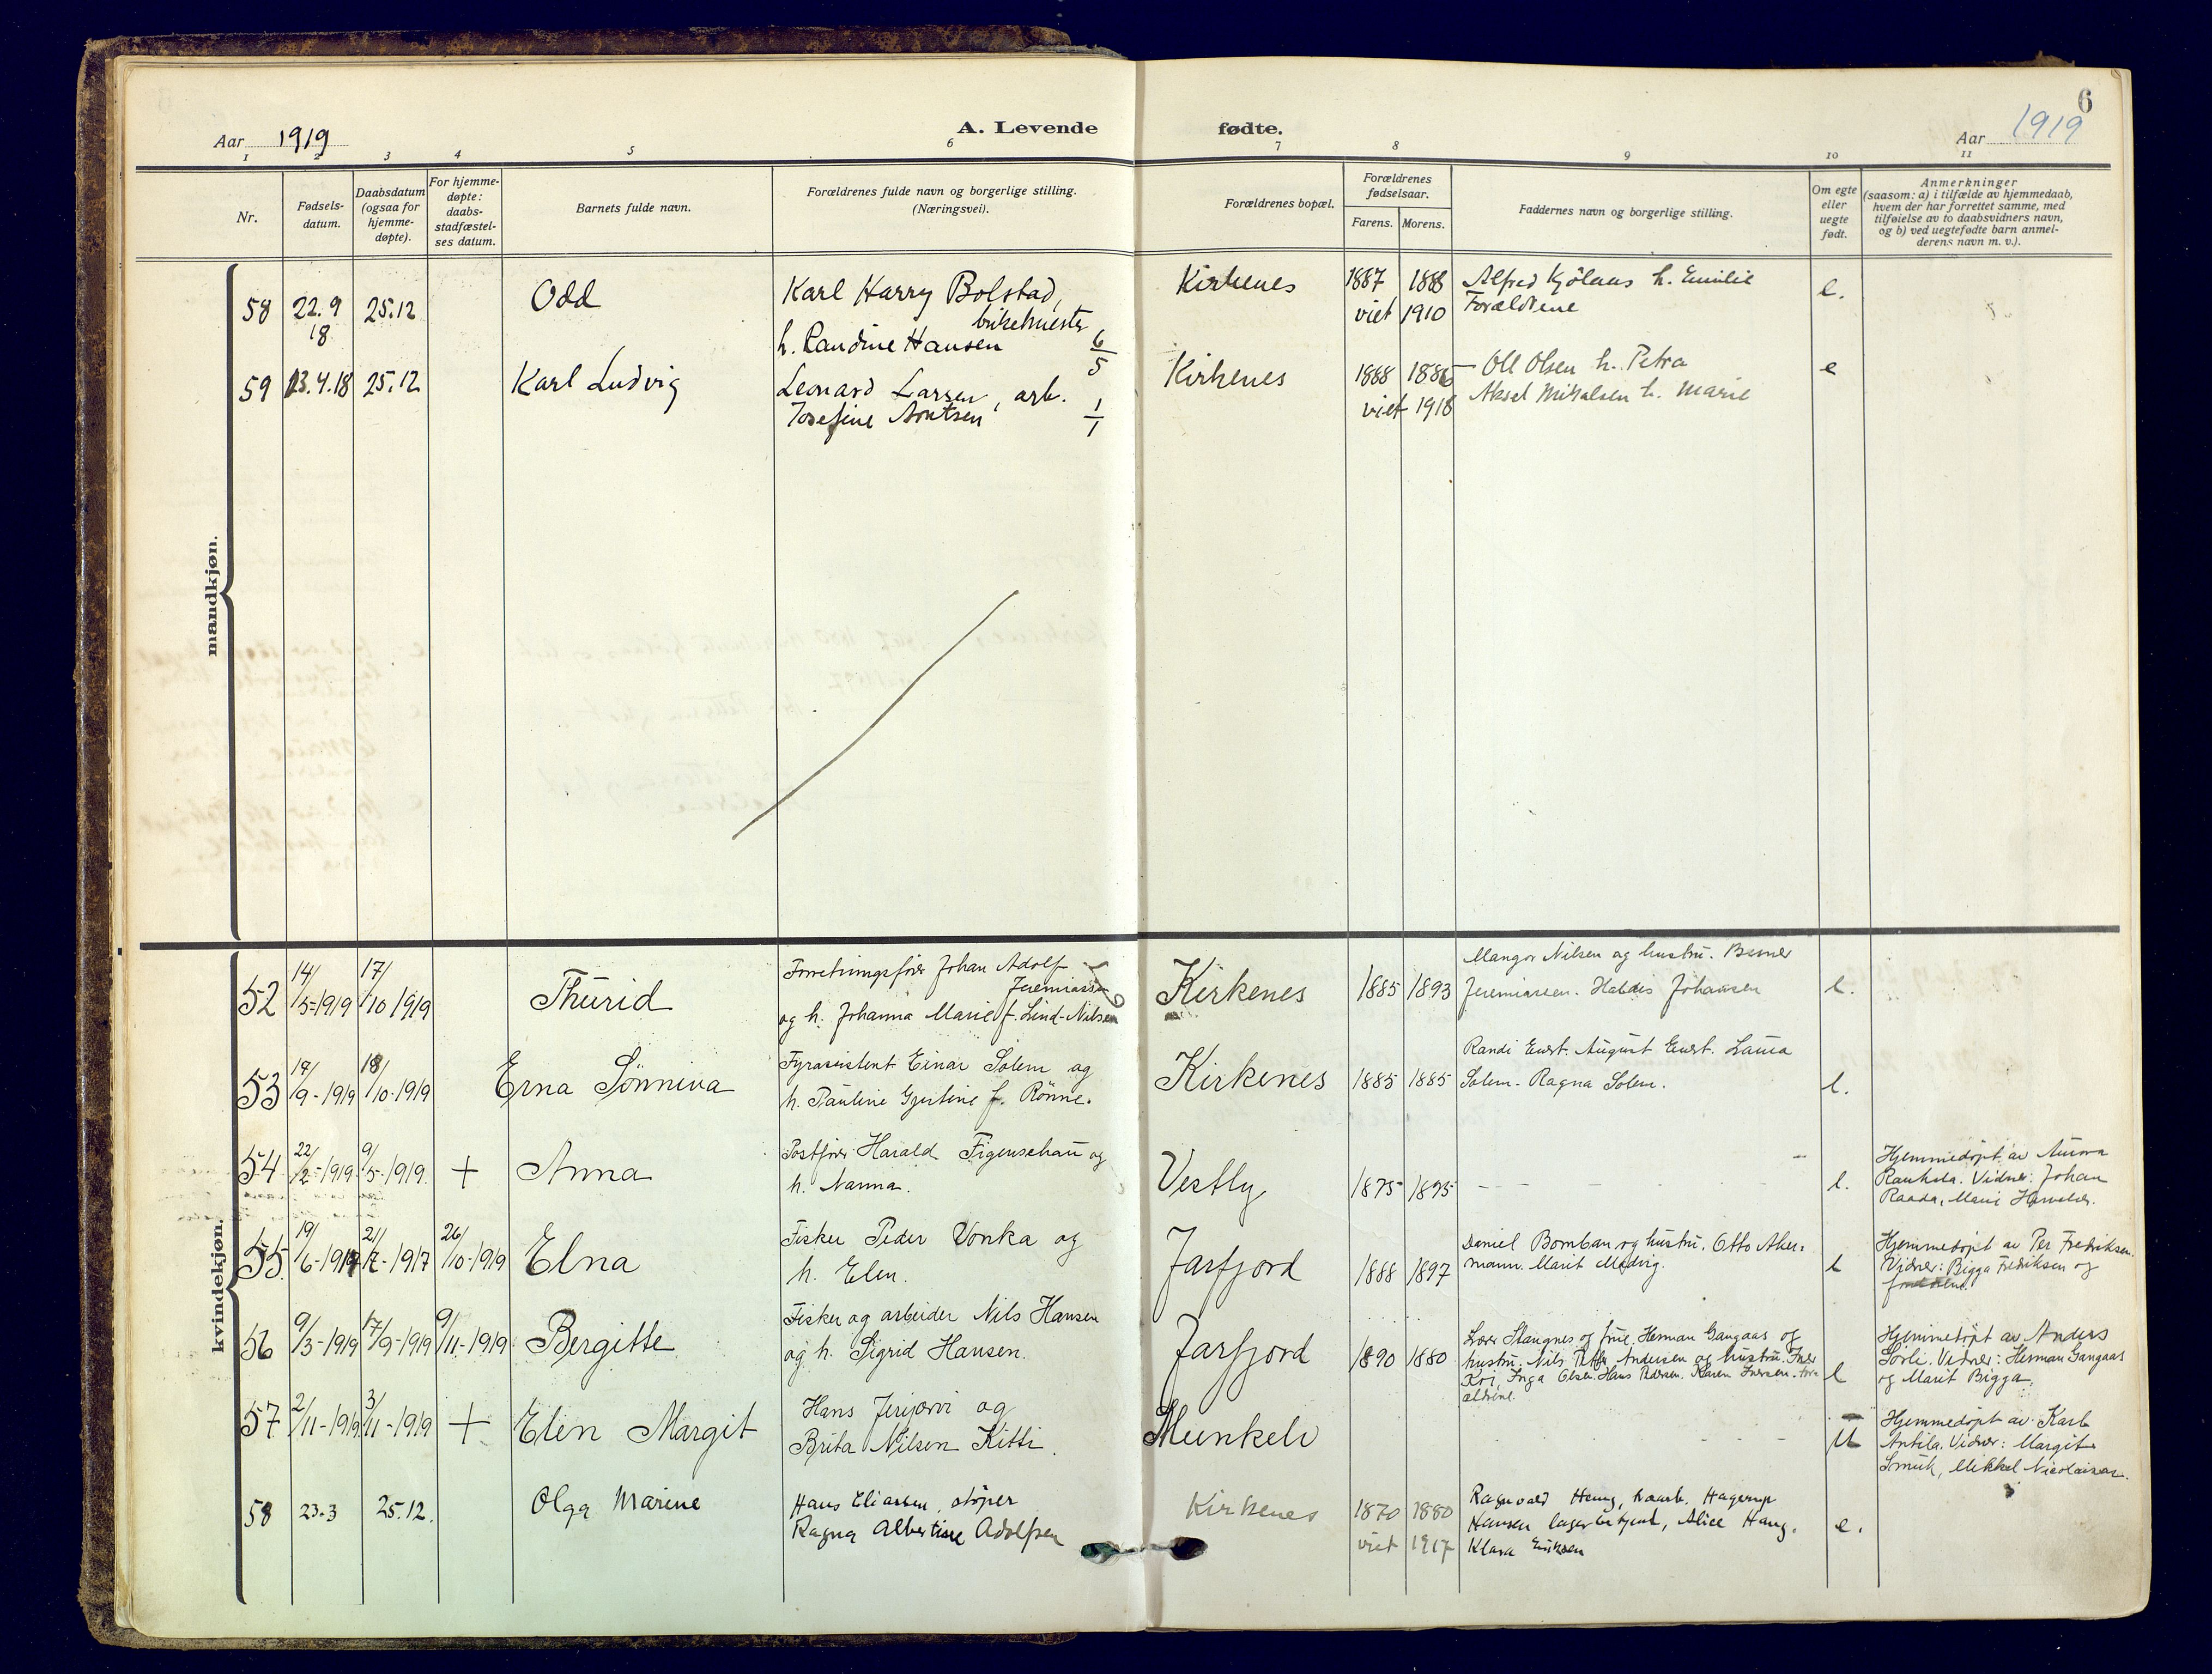 6
Aar 1919
A. Levende fødte.
Aar 1919
1 2 3 4 5 6 7 8 9 10 11
Nr.
Fødsels-
datum.
Daabsdatum
(ogsaa for
hjemme-
døpte).
For hjemme-
døpte:
daabs-
stadfæstel-
ses datum.
Barnets fulde navn.
Forældrenes fulde navn og borgerlige stilling.
(Næringsvei).
Forældrenes bopæl.
Forældrenes
fødselsaar.
Farens. Morens.
Faddernes navn og borgerlige stilling.
Om egte
eller
uegte
født.
Anmerkninger
(saasom: a) i tilfælde av hjemmedaab,
hvem der har forrettet samme, med
tilføielse av to daabsvidners navn,
og b) ved uegtefødte barn anmel-
derens navn m. v.).
mandkjøn.
58 22.9 18 25.12 Odd
Karl Harry Bolstad,
h. Randine Hansen 6/5
Kirkenes 1887 1888
viet 1910
Alfred Kjölaas h. Emilie
Forældrene
e.
59 13.4.18 25.12 Karl Ludvig
Leonard Larsen, arb.
Josefine Arntsen 1/1
Kirkenes 1888 1886
viet 1918
Oll Olsen h. Petra
Aksel Mikalsen h. Marie
e
kvindekjøn.
52 14/5-1919 17/10 1919 Thurid
Forretningsfører Johan Adolf
Jeremiassen
og h. Johanna Marie f. Lind-Nilsen
Kirkenes 1885 1893
Mangor Nilsen og hustru. Berner
Jeremiassen. Haldis Johansen
e.
53 19/9-1919 18/10-1919 Erna Sönniva
Fyrassistent Einar Solem og
h. Pauline Gjertine f. Rönne.
Kirkenes 1885 1885
Randi Evert. August Evert. Laura
Solem - Ragna Solem.
e.
54 22/2-1919 9/5-1919. + Anna
Postfører Harald Figenschau og
h. Nanna.
Vestly 1875 1895 - - - - -
e.
Hjemmedöpt av Aurora
Raukola. Vidner: Johan
Raada, Marie
55. 19/6-1917 21/7-1917 26/10-1919 Elna
Fisker Peder Vonka og
h. Elen.
Jarfjord 1888 1897
Daniel Bomban og hustru. Otto Aker-
mann. Marit Madvig.
e
Hjemmedöpt av Per Fredriksen.
Vidner: Bigga Fredriksen og
forældrene.
56 9/3-1919 17/9-1919 9/11-1919 Bergitte
Fisker og arbeider Nils Hansen
og h. Sigrid Hansen.
Jarfjord 1890 1880
Lærer Stangnes og frue. Herman Gangaas og
hustru. Nils Petter Andersen og hustru. Iver
Koi, Inga Olsen. Hans Pedersen. Karen Iversen. For-
ældrene
e
Hjemmedöpt av Anders
Sörli. Vidner: Herman Gangaas
og Marit Bigga.
57 2/11-1919 3/11-1919 + Elen Margit
Hans Jerijærvi og
Brita Nilsen Kitti.
Munkelv - - - -
U
Hjemmedöpt av Karl
Antila. Vidner: Margit
Smuk, Mikkel Nicolaisen.
58 23.3 25.12. Olga Marine
Hans Eliassen, støper
Ragna Albertine Adolfsen
Kirkenes 1870 1880
viet 1917
Ragnvald Haug, Hagerup
Hansen lagerbetjent, Alice Haug.
Klara Eriksen
e.